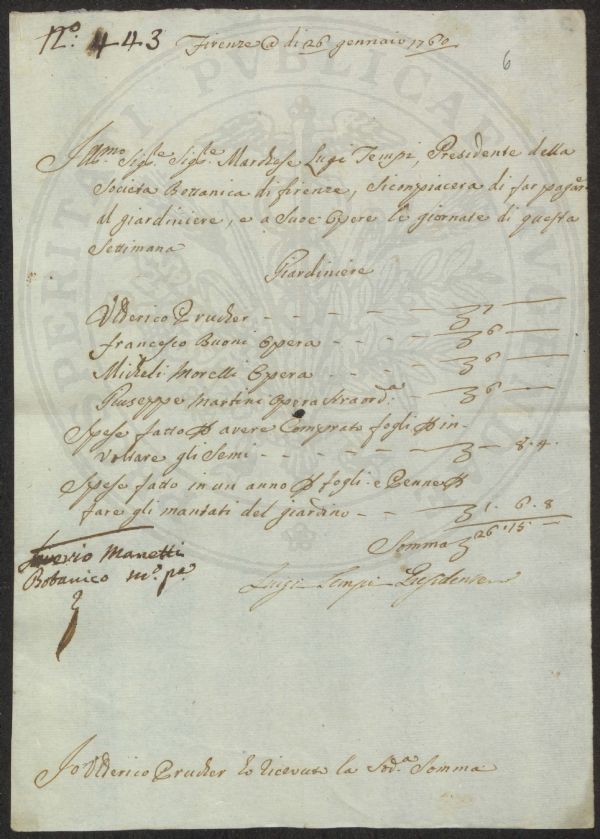 N.º 443 Firenze @ di 26 gennaio 1760
6
Illmo. Sigre. Sigre. Marchese Luigi Tempi, Presidente della
Società Bottanica di firenze, si compiacera di far pagare
al giardiniere, e a Suoe Opere le giornate di questa
Settimana
Giardiniere
Ulderico Prucher - - - - - 7 —
francesco Buoni Opera - - - 6 —
Micheli Morelli Opera - - - 6 —
Giuseppe Martini Opera straord.a - 6 —
Spese fatto p avere Comprato fogli p in-
voltare gli Semi - - - - - - 8. 4.
Spese fatto in un anno p fogli e Penne p
fare gli mantati del giardino - - 1. 6. 8
Somma 26. 15. —
Saverio Manetti
Botanico m.o p.a
Luigi Tempi Presidente
Io Ulderico Prucher ho ricevuto la Sod.a Somma
PERITATI PVBLICAE